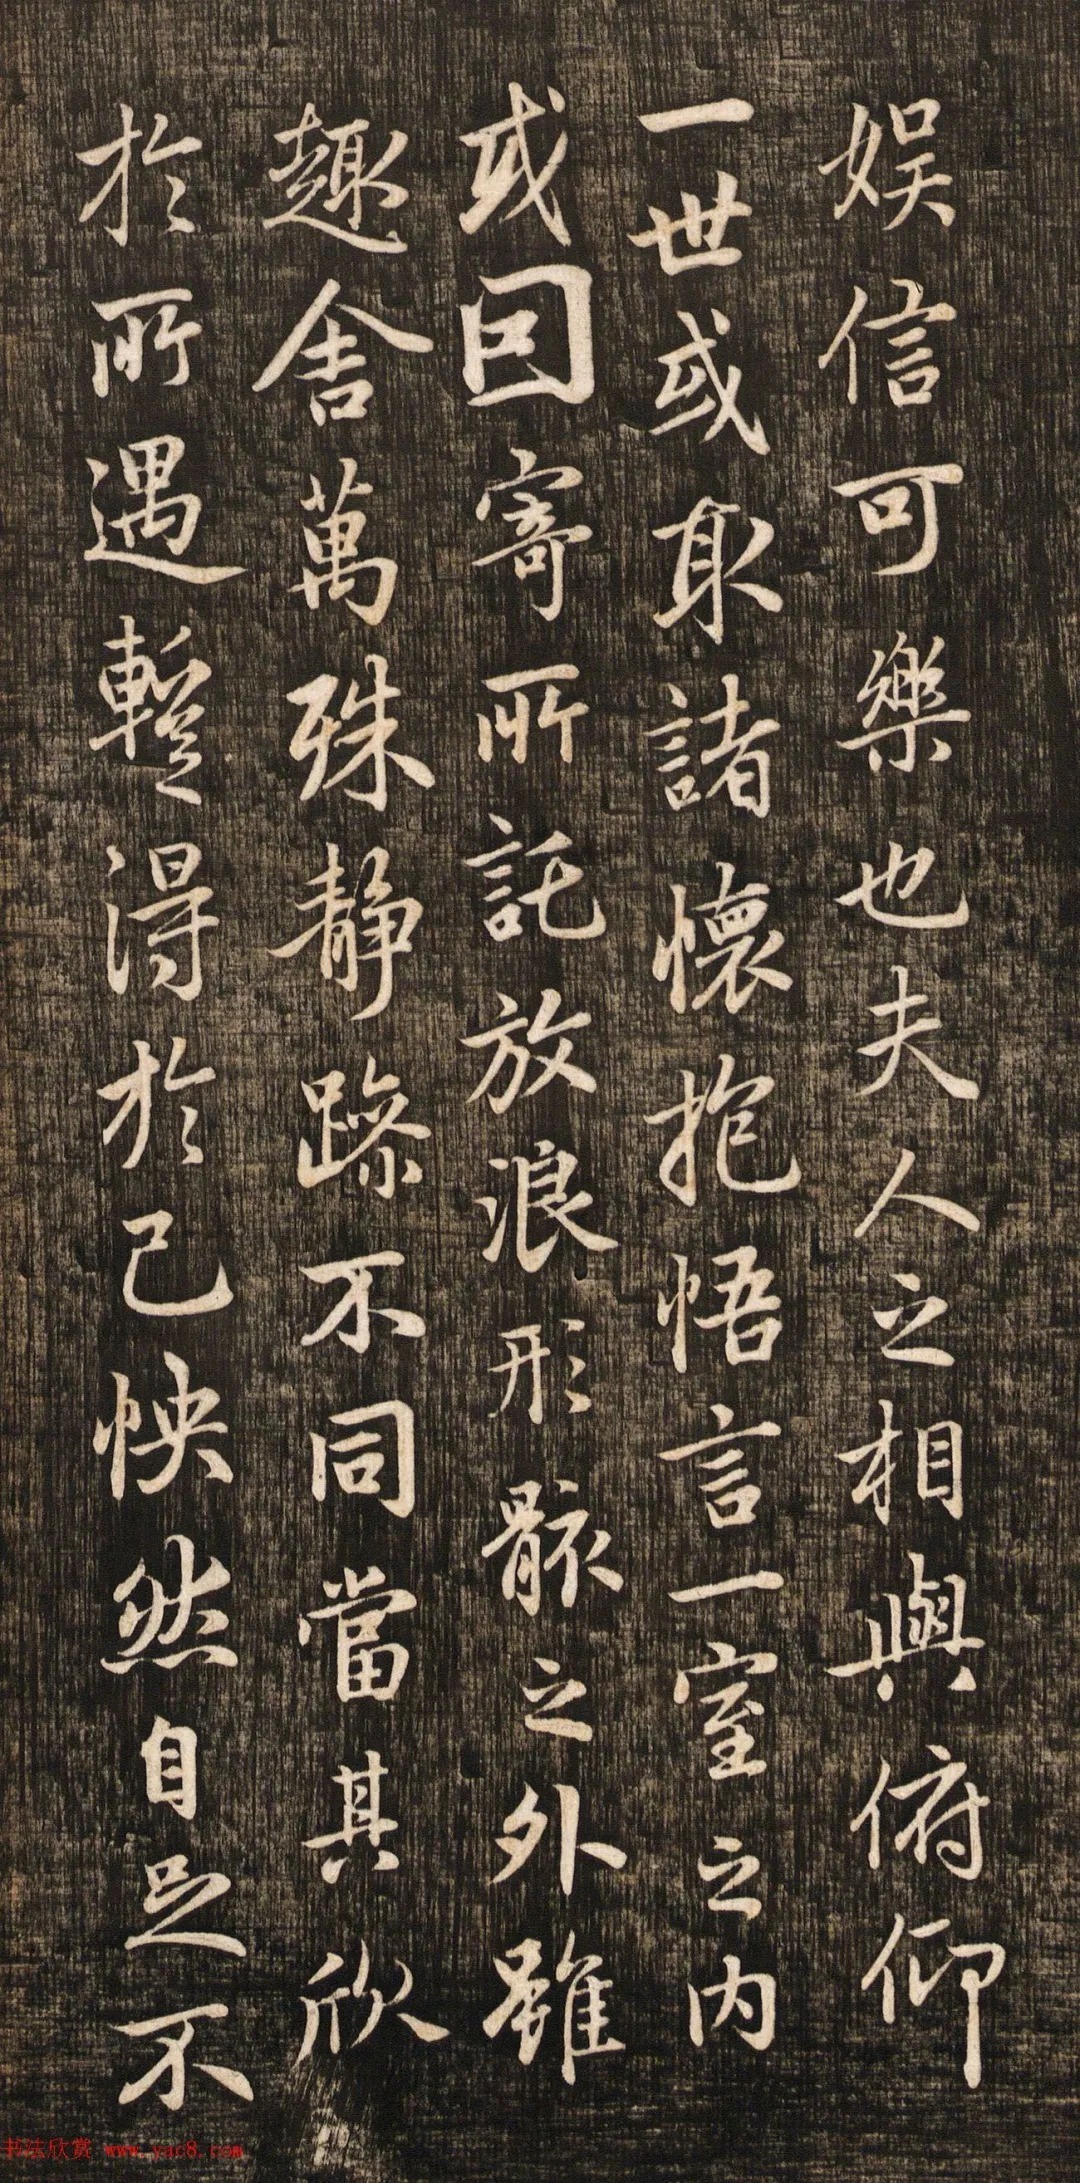 娱信可樂也夫人之相與俯仰
一世或取諸懷抱悟言一室之内
或因寄所託放浪形骸之外雖
趣舍萬殊静躁不同當其欣
於所遇暫得於己怏然自足不
书法欣赏 www.yac8.com